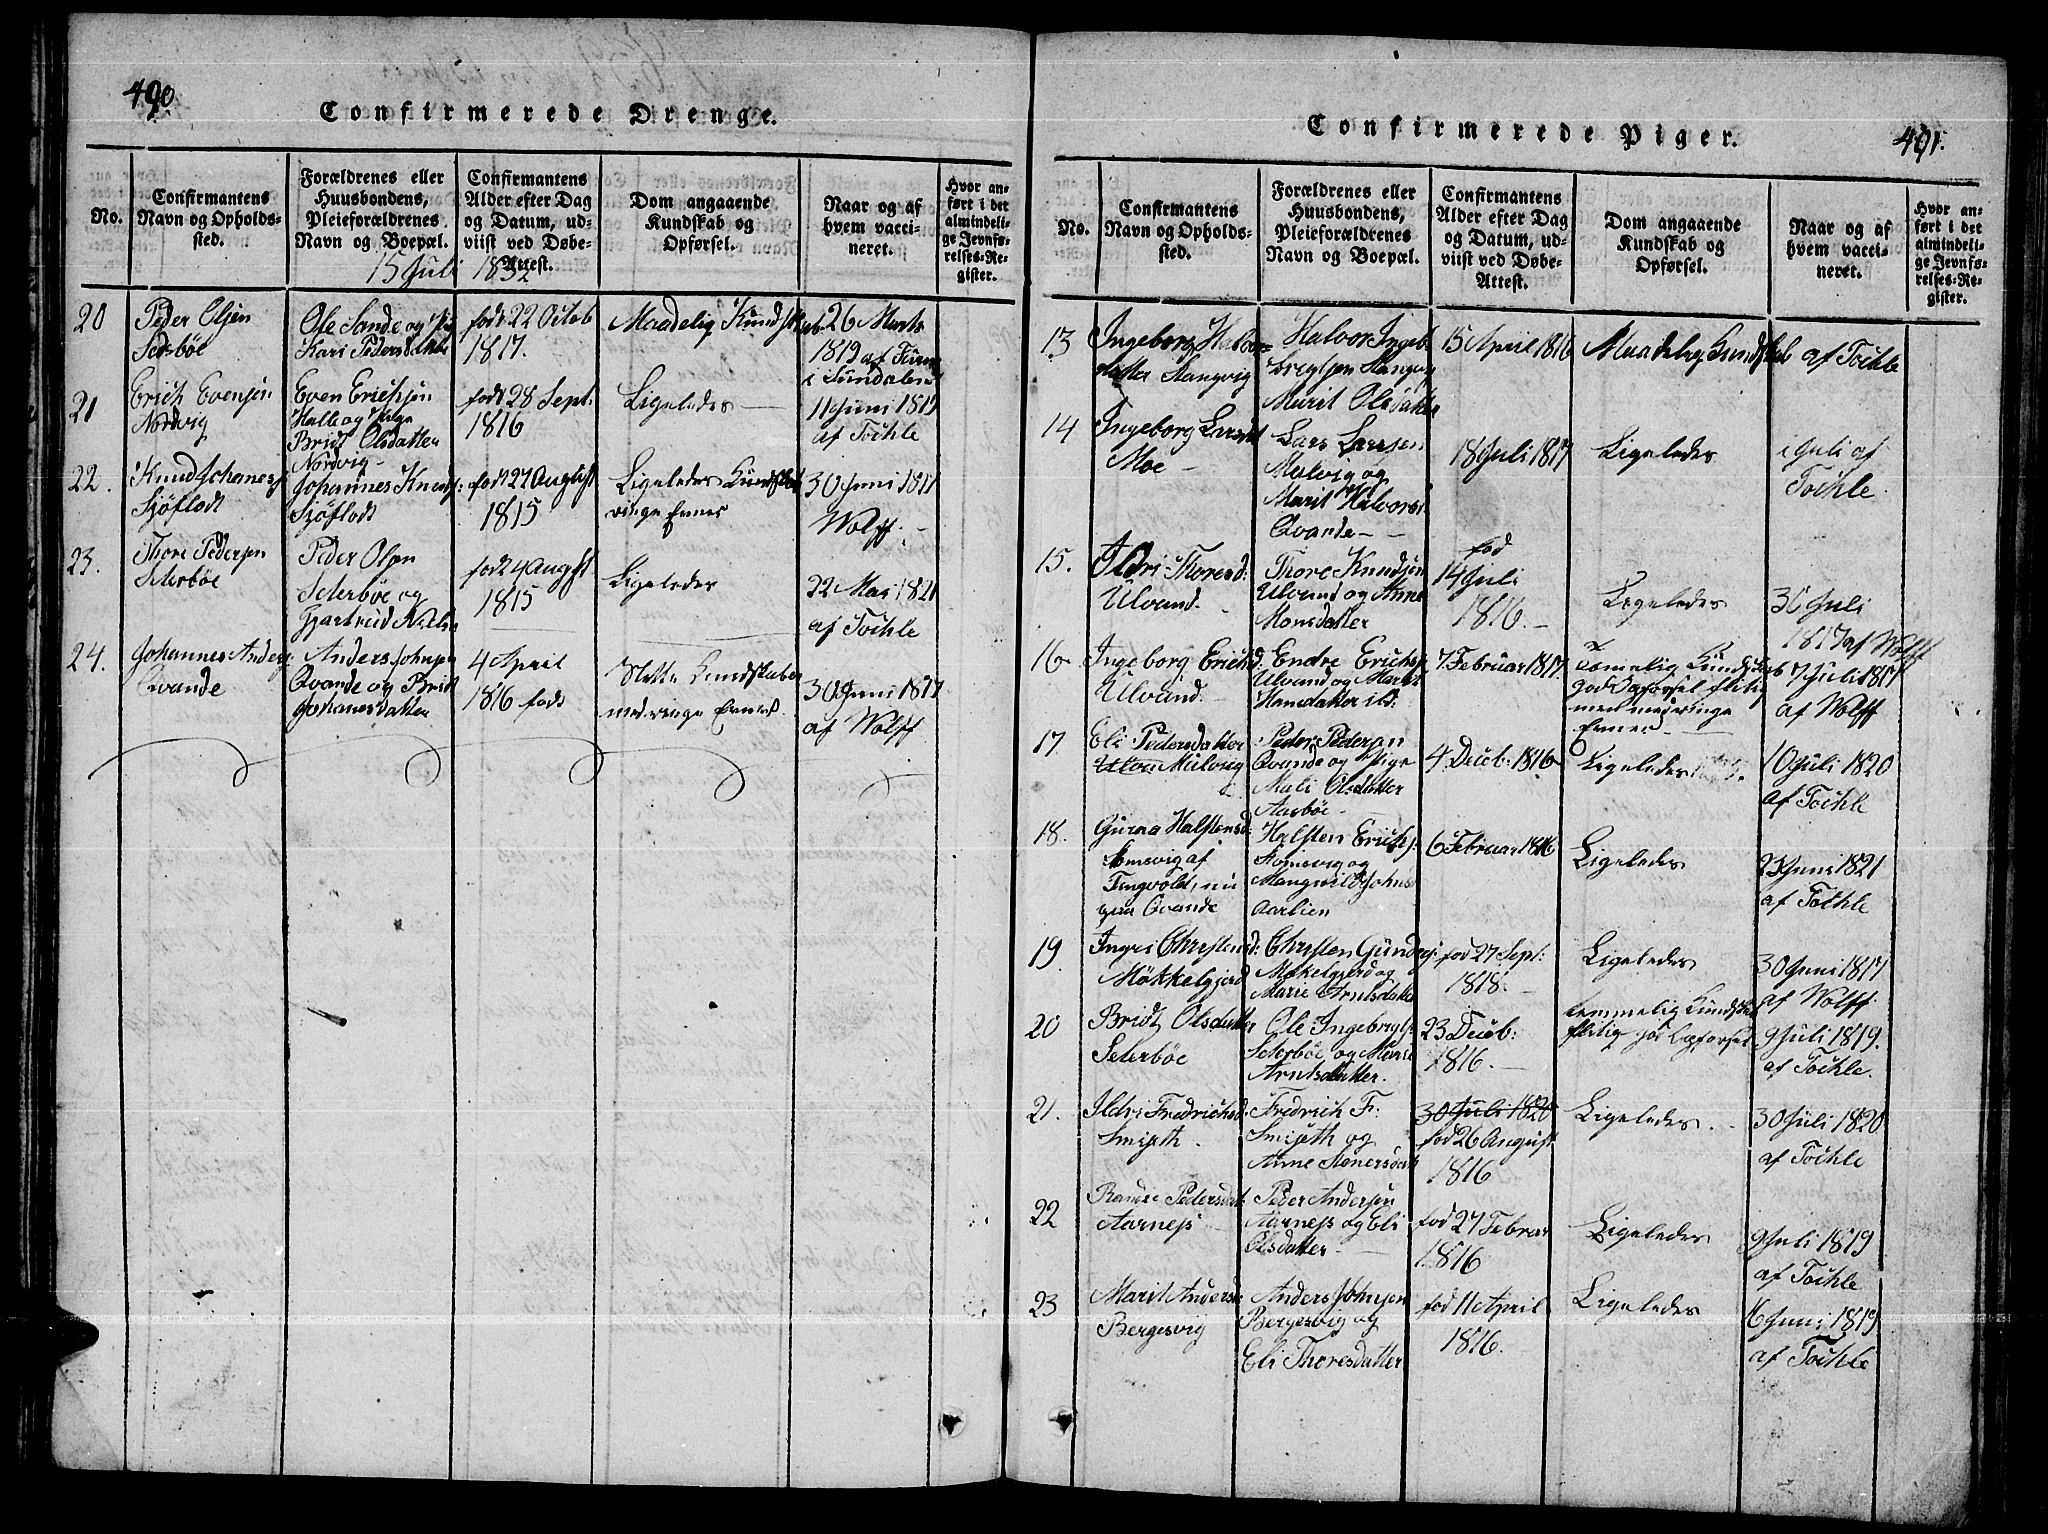 490
Confirmerede Drenge.
No.
Confirmantens
Navn og Opholds-
sted.
Forældrenes eller
Huusbondens,
Pleieforældrenes
Navn og Boepæl.
Confirmantens
Alder efter Dag
og Datum, ud-
viist ved Døbe-
Attest.
Dom angaaende
Kundskab og
Opførsel.
Naar og af
hvem vacci-
neret.
Hvor an-
ført i det
almindeli-
ge Jevnfø-
relses-Re-
gister.
15 Juli 1832
20
Peder Olsen
Seterbøe
Ole Sande og
Kari Peders
født 22 Octob
1817.
Maadelig Kundskab
26 Marts
1819 af
i Sundalen
21
Erich Evensen
Nordvig
Even Erichsen
Halle og Pige
Bridt Olsdatter
Nordvig
født 28 Sept.
1816
Ligeledes
11 Juni 1819
af Tochle
22.
Knud Johannes
Sjøflodt
Johannes Knuds:
Sjøflodt
født 27 August
1815
Ligeledes Kundskab
ringe Evner
30 Juni 1817
Wolff.
23.
Thore Pedersen
Seterbøe
Peder Olsen
Seterbøe og
Gjertrud Niels
født 24 August
1815
Ligeledes
22 Mai 1821
af Tochle
24.
Johannes Anders:
Qvande
Anders Johnsen
Qvande og Bridt
Johanesdatter
4 April
1816 født
Slette Kundskaber
med ringe Evner.
30 Juni 1817
af Wolff
Confirmerede Piger.
491.
No.
Confirmantens
Navn og Opholds-
sted.
Forældrenes eller
Huusbondens,
Pleieforældrenes
Navn og Boepæl.
Confirmantens
Alder efter Dag
og Datum, ud-
viist ved Døbe-
Attest.
Dom angaaende
Kundskab og
Opførsel.
Naar og af
hvem vacci-
neret.
Hvor an-
ført i det
almindeli-
ge Jevnfø-
relses-Re-
gister.
13
Ingeborg Halvors
datter Stangvig
Halvor Ingeb
bregtsen Stangv
Marit Olsdatter
15 April 1816
Maadelig Kundskab
af Tochle
14
Ingeborg Larsdt
Moe
Lars Larsen
Mulvig og
Marit Halvors
Qvande
18 Juli 1817
Ligeledes
Juli af
Tochle
15.
Ildri Thoresd:
Ulvund.
Thore Knudsen
Ulvund og Anne
Monsdatter
fød
14 Juli
1816.
Ligeledes
30 Juli
1817 af Wolff
16
Ingeborg Erichsd:
Ulvund.
Endre Erichs
Ulvund og Marit
Hansdatter ibd:
7 Februar 1817.
Temmelig Kundskab
god Opførsel flitig
men med ringe
Evner
7 Juli 1817
af Wolff
17
Eli Pedersdatter
Ulvun Mulvig
Peder Pedersen
Qvande og Pige
Mali Olsdatter
Aasbøe
4 Decb: 1816
Ligeledes
10 Juli 1820
af Tochle
18.
Guraa Halstensd:
Somsvig af
Tingvold, nu
paa Qvande
Halsten Erichs:
Somsvig og
Mangnild Johns
Aarlien
6 Februar 1816
Ligeledes
23 Juni 1821
af Tochle
19
Ingri Christensd:
Møkkelgjerd
Christen Gunders:
Møkelgjerd og
Marie Arntsdatter
fød 27 Sept:
1818.
Ligeledes
30 Juni 1817
af Wolff.
20
Bridt Olsdatter
Seterbøe
Ole Ingebregts:
Seterbøe og Marie
Arntsdatter.
23 Decb:
1816.
temmelig Kundskab
flitig god Opførsel
9 Juli 1819.
af Tochle.
21.
Ildri Fredrichsd:
Smiseth
Fredrich Fr:
Smiseth og
Anne Stenersdatt
30 Juli 1820
fød 26 August
1816
Ligeledes
30 Juli 1820
af Tochle
22
Pedersdat:
Aarness
Peder Andersen
Aarness og Eli
Olsdatter
fød 27 Februar
1816
Ligeledes
9 Juli 1819
af Tochle
23
Marit Anders:
Bergesvig
Anders Johnsen
Bergesvig og
Eli Thoresdatter
fød 11 April
1816.
Ligeledes
16 Juni 1819
af Tochle